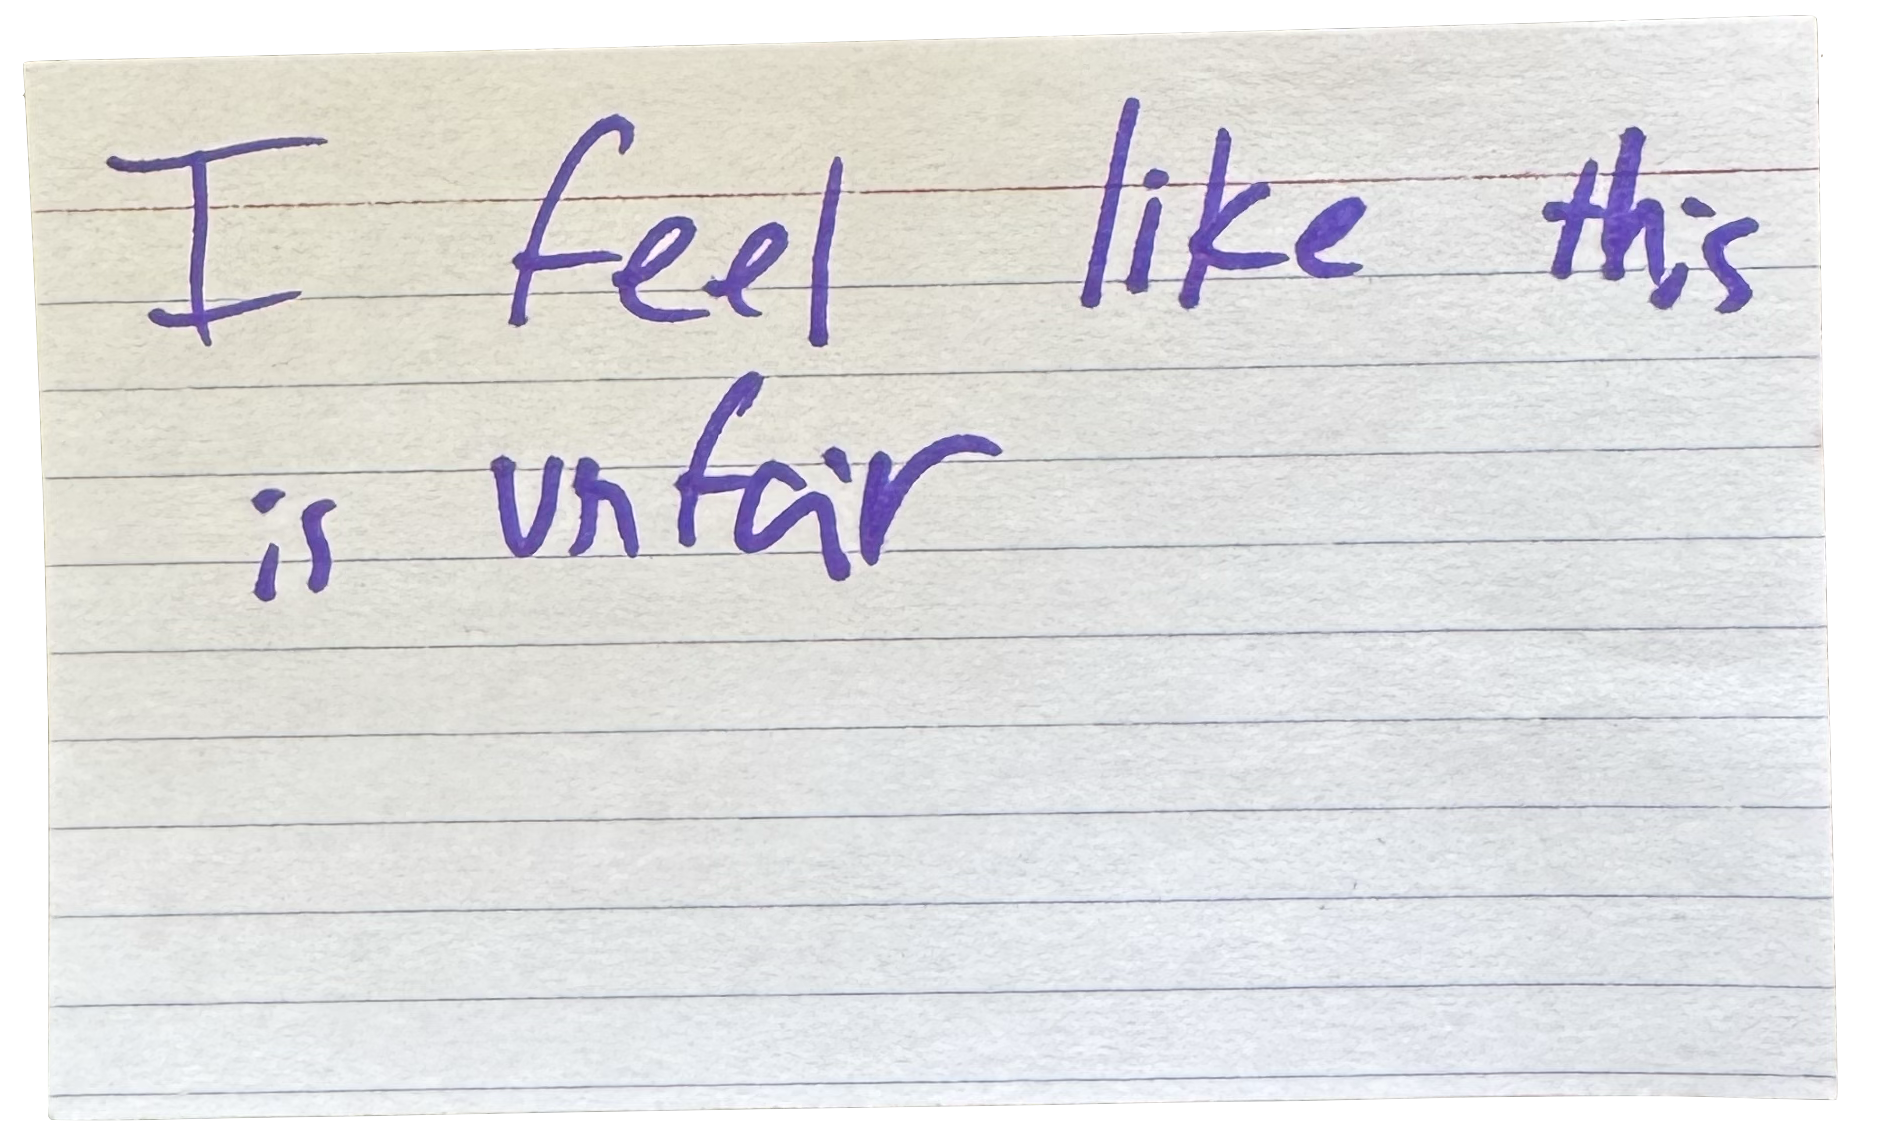 I feel like this
is unfair